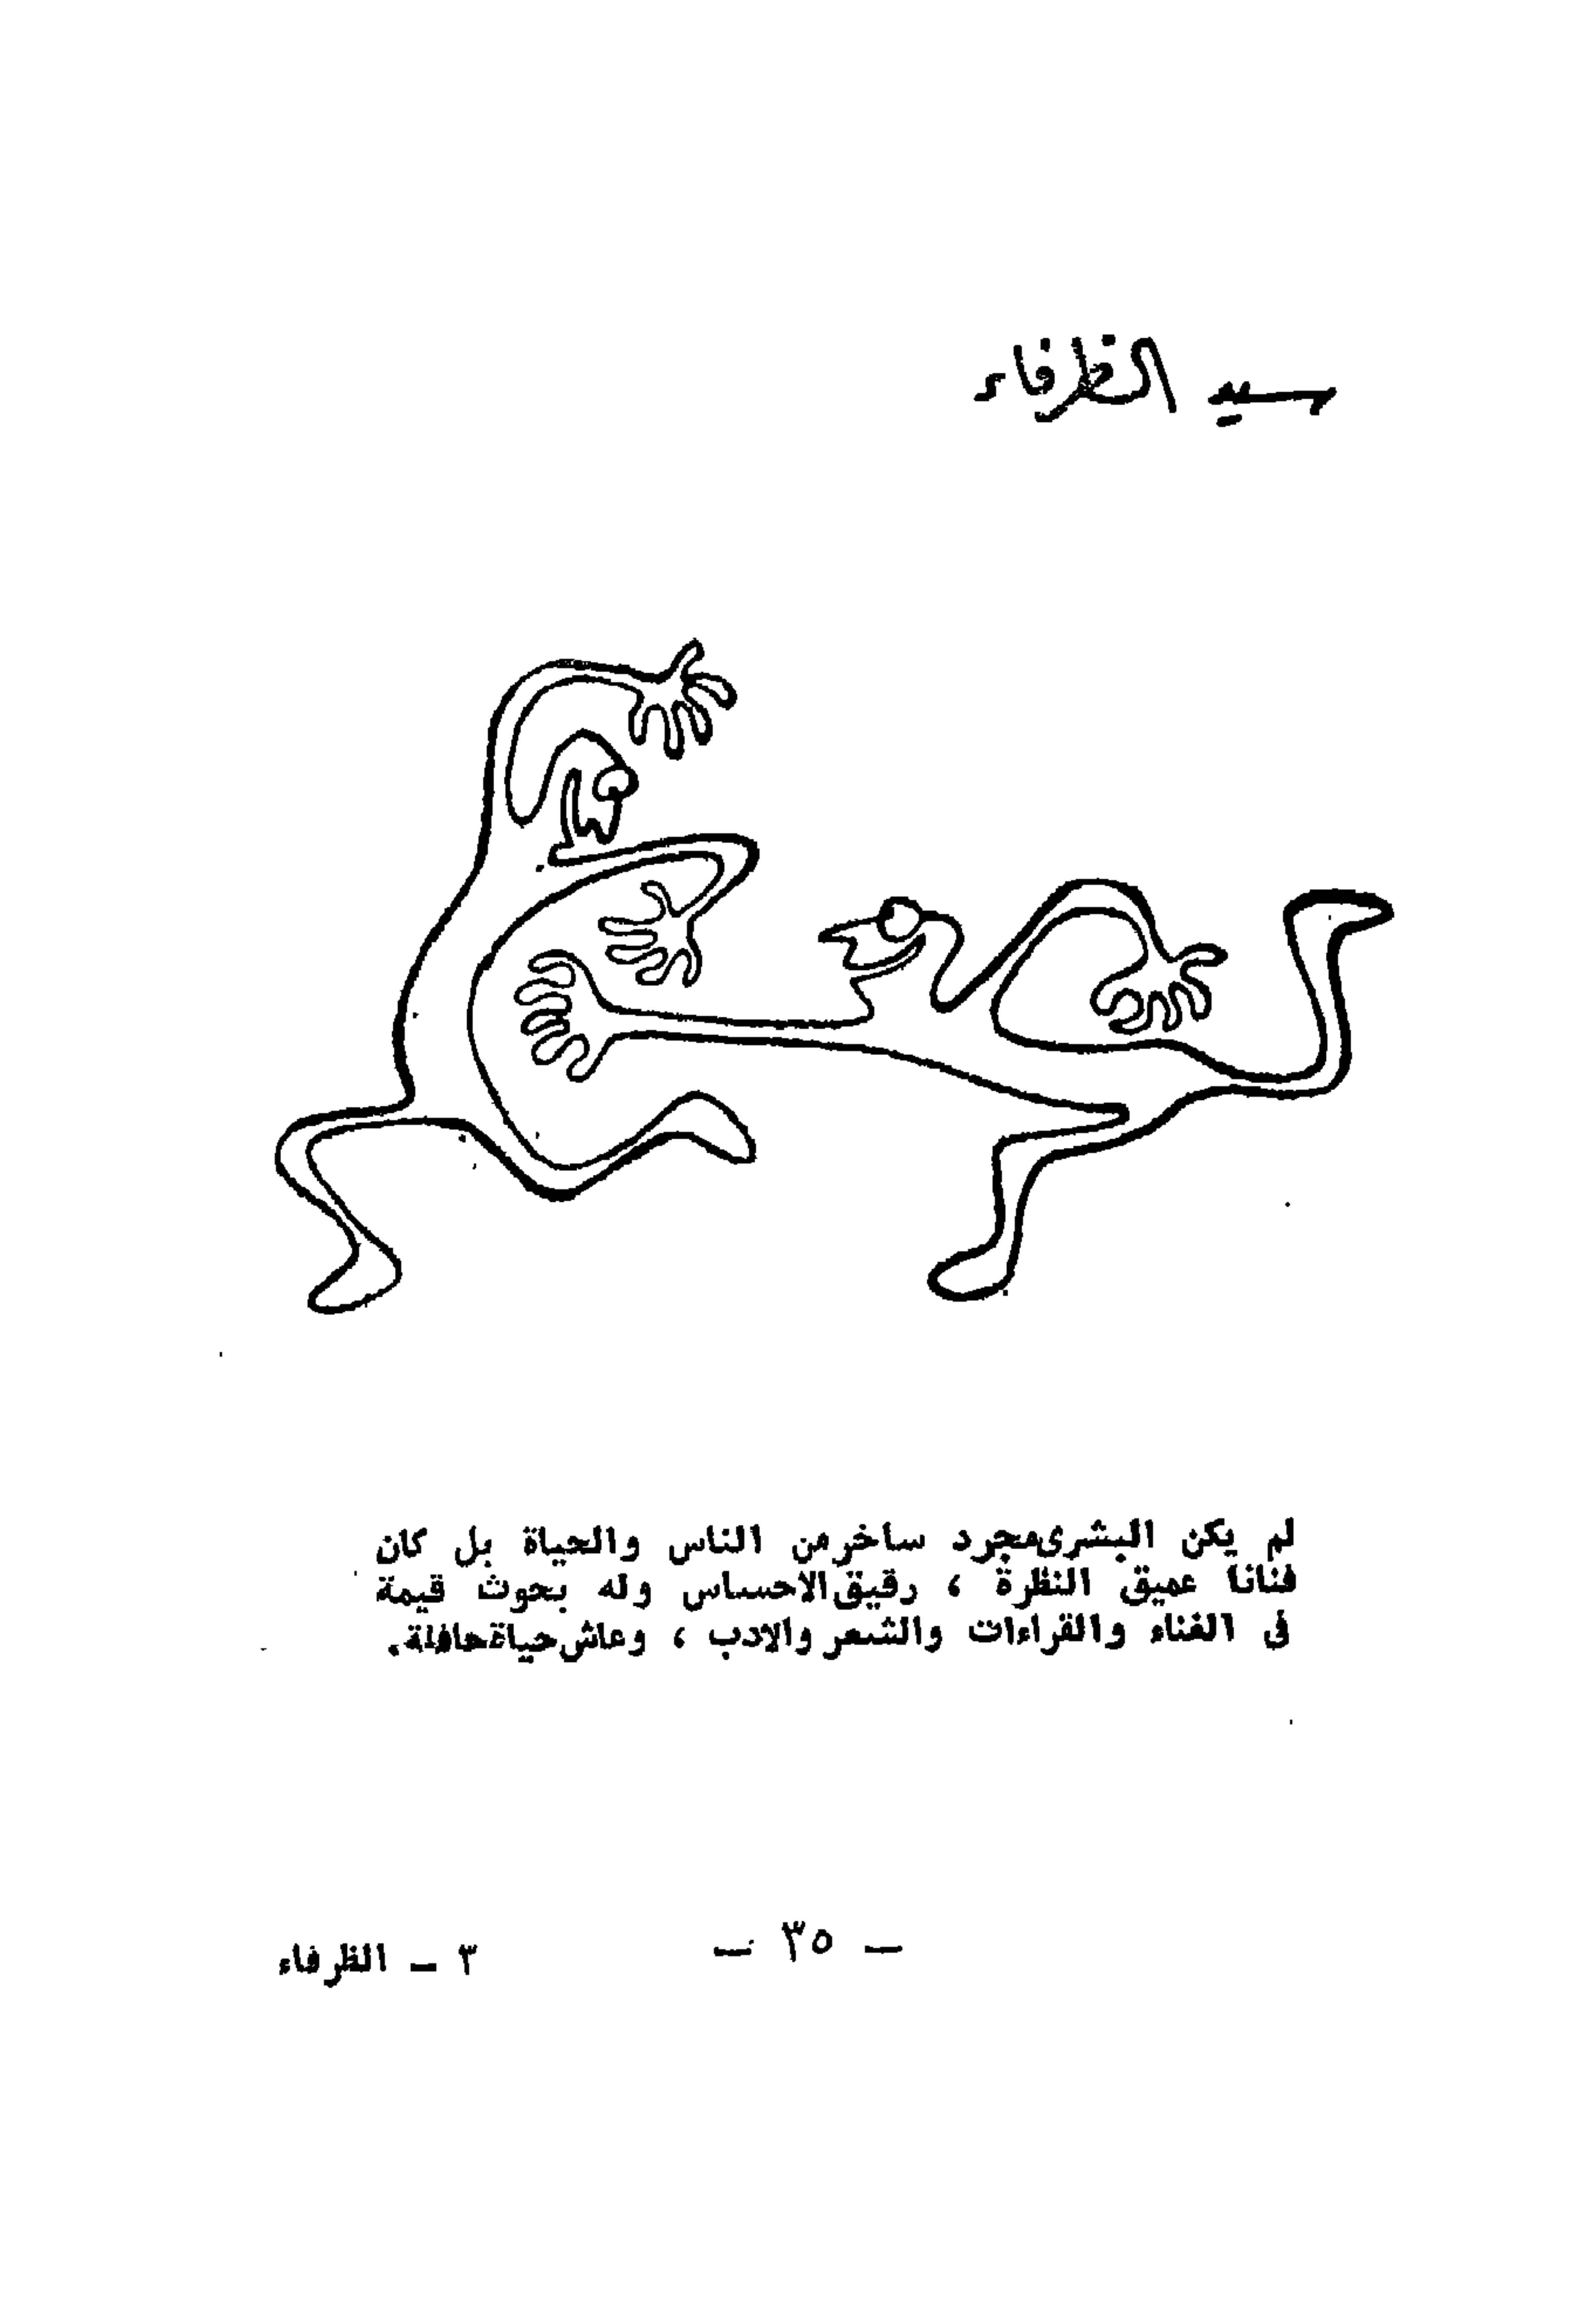 سيد الظرفاء
لم يكن البشرى مجرد ساخر من الناس والحياة بل كان
فنانا عميق النظرة ، رقيق الاحساس وله بحوث قيمة
فى الغناء والقراءات والشعر والادب ، وعاش حياة حافلة.
— ٣٥ —
٣ — الظرفاء